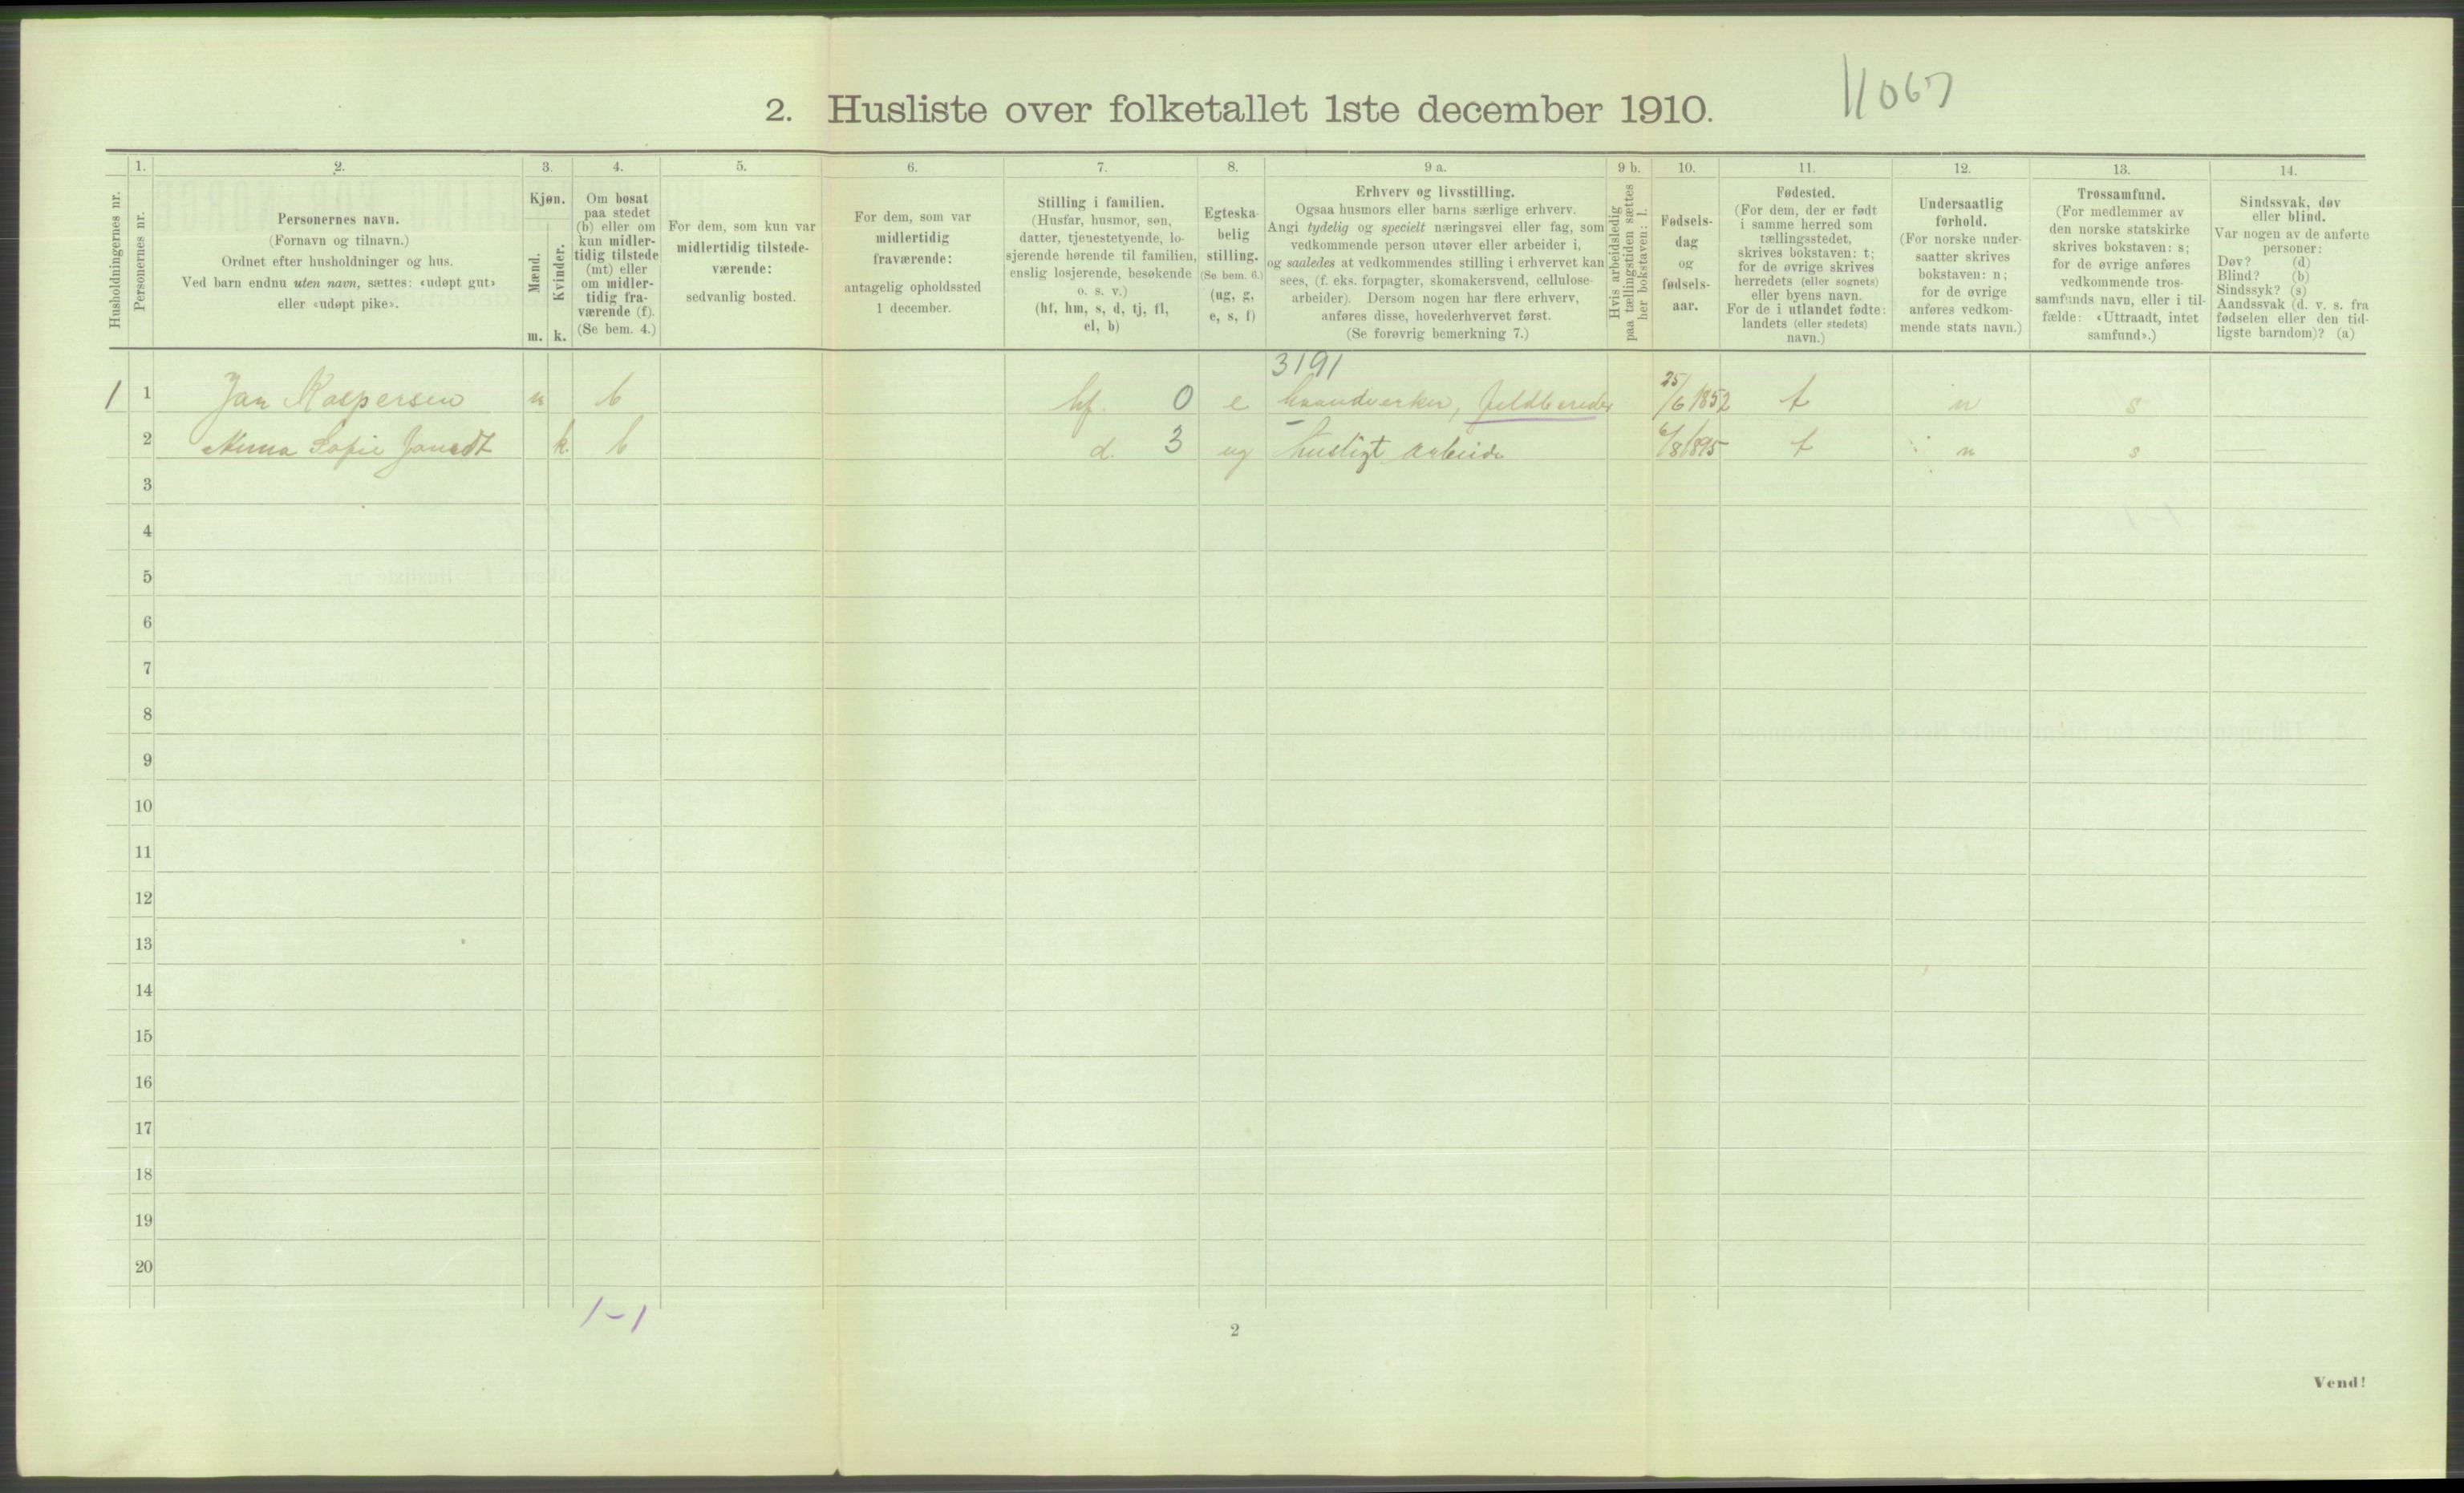 11067
2. Husliste over folketallet 1ste december 1910.
Husholdningernes nr.
1.
Personernes nr.
2.
Personernes navn.
(Fornavn og tilnavn.)
Ordnet efter husholdninger og hus.
Ved barn endnu uten navn, sættes: «udøpt gut»
eller «udøpt pike».
3.
Kjøn.
Mænd.
Kvinder.
m. k.
4.
Om bosat
paa stedet
(b) eller om
kun midler-
tidig tilstede
(mt) eller
om midler-
tidig fra-
værende (f).
(Se bem. 4.)
5.
For dem, som kun var
midlertidig tilstede-
værende:
sedvanlig bosted.
6.
For dem, som var
midlertidig
fraværende:
antagelig opholdssted
1 december.
7.
Stilling i familien.
(Husfar, husmor, søn,
datter, tjenestetyende, lo-
sjerende hørende til familien,
enslig losjerende, besøkende
o. s. v.)
(hf, hm, s, d, tj, fl,
el, b)
8.
Egteska-
belig
stilling.
(Se bem. 6.)
(ug, g,
e, s, f)
9 a.
Erhverv og livsstilling.
Ogsaa husmors eller barns særlige erhverv.
Angi tydelig og specielt næringsvei eller fag, som
vedkommende person utøver eller arbeider i,
og saaledes at vedkommendes stilling i erhvervet kan
sees, (f. eks. forpagter, skomakersvend, cellulose-
arbeider). Dersom nogen har flere erhverv,
anføres disse, hovederhvervet først.
(Se forøvrig bemerkning 7.)
9 b.
Hvis arbeidsledig
paa tællingstiden sættes
her bokstaven: l.
10.
Fødsels-
dag
og
fødsels-
aar.
11.
Fødested.
(For dem, der er født
i samme herred som
tællingsstedet,
skrives bokstaven: t;
for de øvrige skrives
herredets (eller sognets)
eller byens navn.
For de i utlandet fødte:
landets (eller stedets)
navn.)
12.
Undersaatlig
forhold.
(For norske under-
saatter skrives
bokstaven: n;
for de øvrige
anføres vedkom-
mende stats navn.)
13.
Trossamfund.
(For medlemmer av
den norske statskirke
skrives bokstaven: s;
for de øvrige anføres
vedkommende tros-
samfunds navn, eller i til-
fælde: «Uttraadt, intet
samfund».)
14.
Sindssvak, døv
eller blind.
Var nogen av de anførte
personer:
Døv? (d)
Blind? (b)
Sindssyk? (s)
Aandssvak (d. v. s. fra
fødselen eller den tid-
ligste barndom)? (a)
3191
1 1 Jan Kaspersen m b hf. 0 e haandverker, feldbereder 25/6 1852 t n s
2 Anna Sofie Jansdt k. b d. 3 ug husligt arbeide 6/8 1895 t n s
3
4
5
6
7
8
9
10
11
12
13
14
15
16
17
18
19
20
1-1
2
Vend!